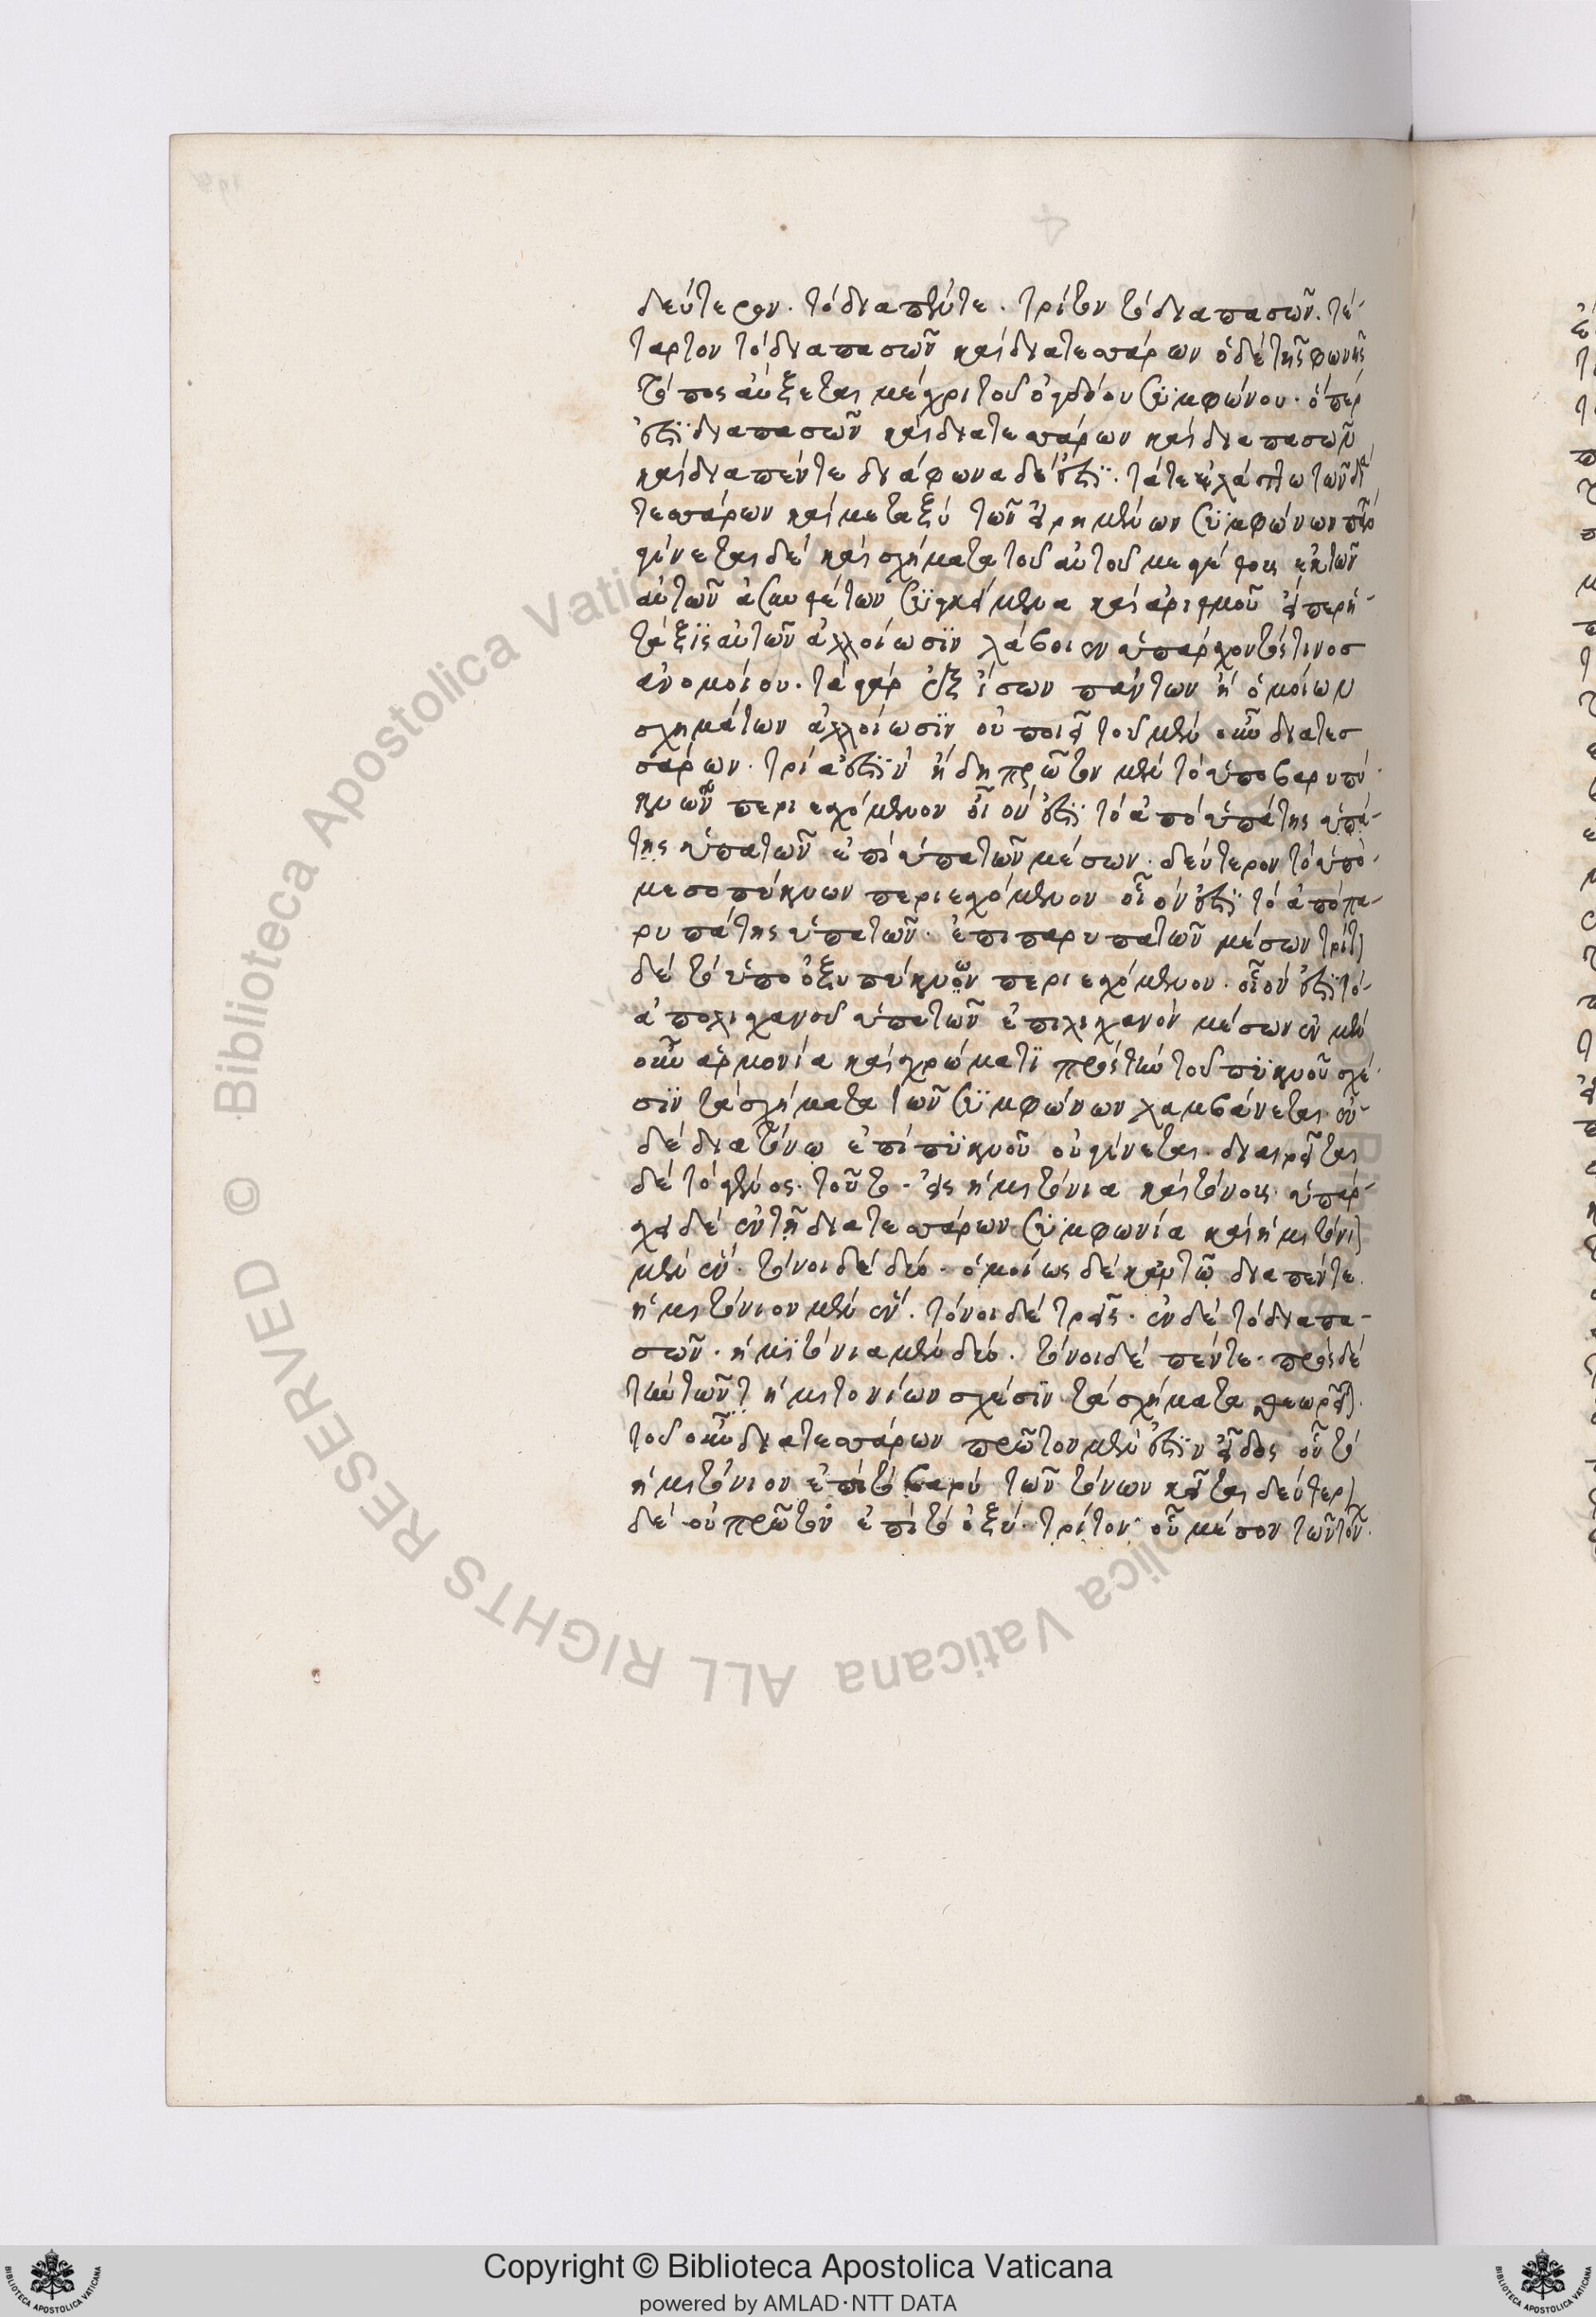 δεύτερον. τὸ διαπέντε. τρίτον τὸ διαπασῶν. τέ-
ταρτον τὸ διαπασῶν καὶ διατεσσάρων ὁ δὲ τῆς φωνῆς
τόπος αὔξεται μέχρι τοῦ ὀγδόου συμφώνου. ὅπερ
ἐστὶ διαπασῶν καὶ διατεσσάρων καὶ διαπασῶν
καὶ διαπέντε διάφωνα δέ ἐστι. τά τε ἐλάττω τῶν διὰ
τεσσάρων καὶ μεταξὺ τῶν εἰρημένων συμφώνων
γίνεται δὲ καὶ σχήματα τοῦ αὐτοῦ μεγέθους ἐκ τῶν
αὐτῶν ἀσυνθέτων συγκείμενα καὶ ἀριθμοῦ εἴπερ ἡ
τάξις αὐτῶν ἀλλοίωσιν λάβοι ὑπάρχοντός τινος
ἀνομοίου. τὰ γὰρ ἐξ ἴσων πάντων ἢ ὁμοίων
σχημάτων ἀλλοίωσιν οὐ ποιεῖ τοῦ μὲν οὖν διατεσ
σάρων. τρία ἐστὶν εἴδη πρῶτον μὲν τὸ ὑπο βαρυπύ
κνων περιεχόμενον οἷόν ἐστι τὸ ἀπὸ ὑπάτης ὑπά-
της ὑπατῶν ἐπὶ ὑπατῶν μέσων. δεύτερον τὸ ὑπὸ
μεσοπύκνων περιεχόμενον οἷόν ἐστι τὸ ἀπὸ πα-
ρυπάτης ὑπατῶν. ἐπι παρυπατῶν μέσων τρίτον
δὲ τὸ ὑπο ὀξυπύκνων περιεχόμενον. οἷόν ἐστι τὸ
ἀπο λιχανοῦ ὑπατῶν ἐπι λιχανὸν μέσων ἐν μὲν
οὖν ἁρμονία καὶ χρώματι πρὸς τὴν τοῦ πυκνοῦ σχέ
σιν τὰ σχήματα τῶν συμφώνων λαμβάνεται ἐν
δὲ διατόνω ἐπὶ πυκνοῦ οὐ γίνεται. διαιρεῖται
δὲ τὸ γένος. τοῦτο. εἰς ἡμιτόνια καὶ τόνους ὑπάρ-
χει δὲ ἐν τῇ διατεσσάρων συμφωνία καὶ ἡμιτόνιον
μὲν ἕν. τόνοι δὲ δύο. ὁμοίως δὲ κἀν τῷ διαπέντε.
ἡμιτόνιον μὲν ἕν. τόνοι δὲ τρεῖς. ἐν δὲ τὸ διαπα-
σῶν. ἡμιτόνια μὲν δύο. τόνοι δὲ πέντε. πρὸς δὲ
τὴν τῶν ἡμιτονίων σχέσιν τὰ σχήματα θεωρεῖται.
τοῦ οὖν διατεσσάρων πρῶτον μὲν ἐστὶν εἶδος οὗ τὸ
ἡμιτόνιον ἐπὶ τὸ βαρὺ τῶν τόνων κεῖται δεύτερον
δὲ οὗ πρῶτον ἐπὶ τὸ ὀξύ. τρίτον οὗ μέσον τῶν τόν.
Copyright © Biblioteca Apostolica Vaticana
powered by AMLAD·NTT DATA